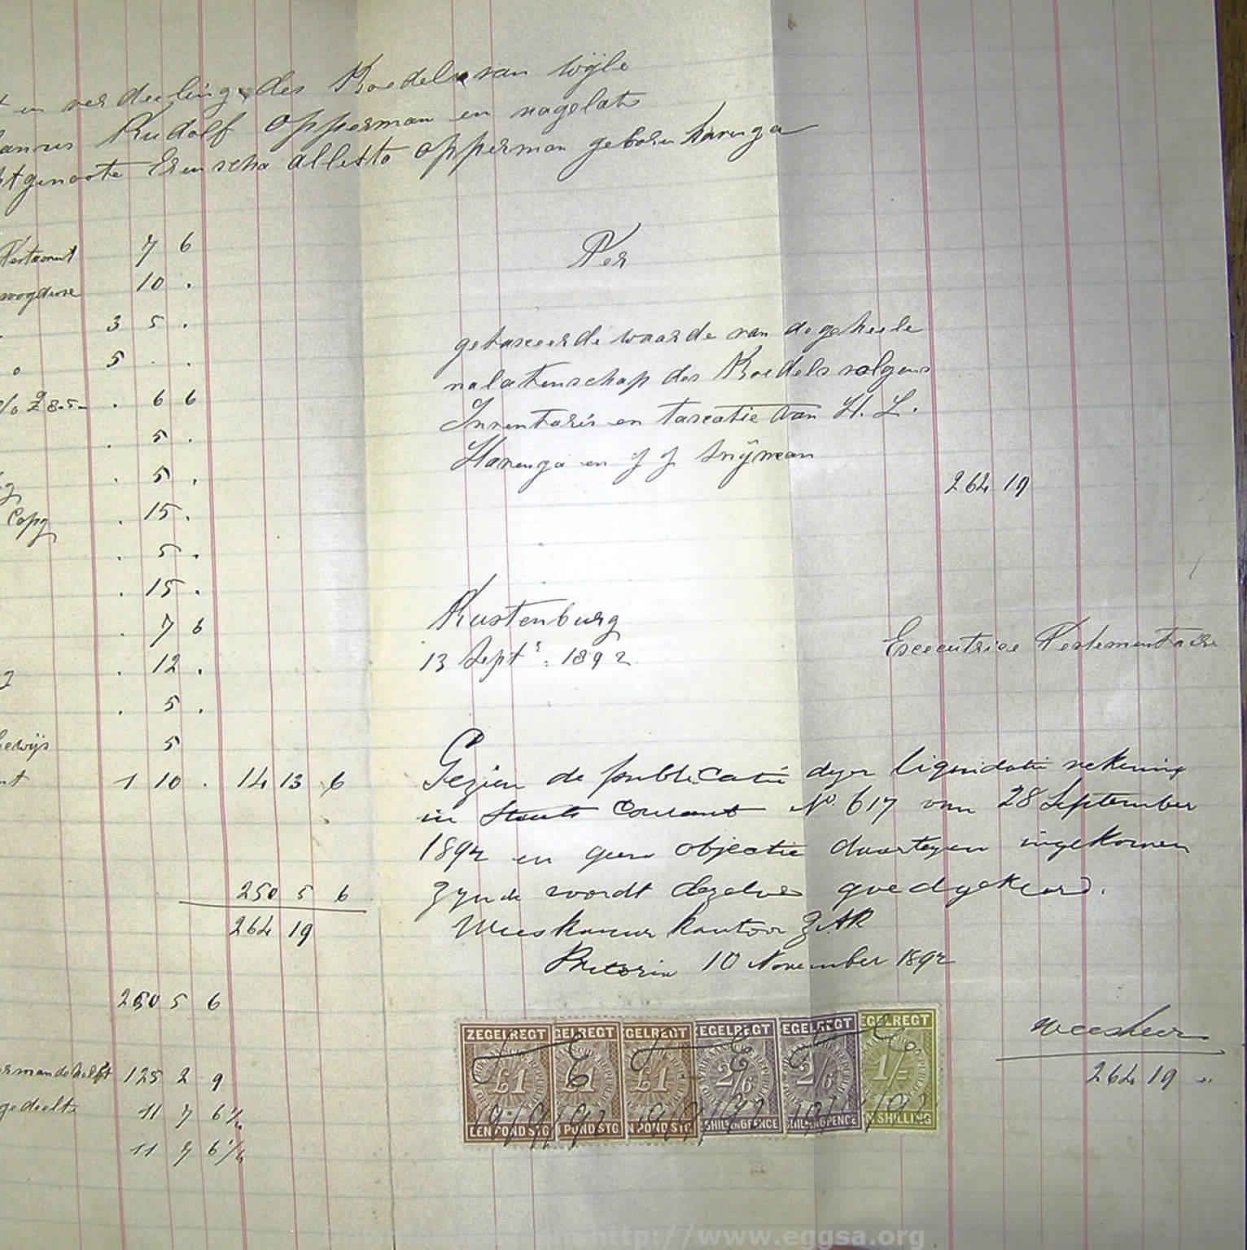 en verdeeling des Boedels van wijle
Rudolf Opperman en nagelate
alletta Opperman geboren Haruga
Testament 7 6
10 .
3 5 .
5 . .
. 6 6
. 5 .
. 5 .
Copy . 15 .
. 5 .
. 15 .
. 7 6
. 12 .
. 5 .
bewijs 5
1 10 . 14 13 6
250 5 6
264 19
250 5 6
125 2 9
gedeelte 11 7 6½
11 7 6½
Per
getaxeerde waarde van de geheele
nalatenschap des Boedels volgens
Inventaris en taxatie van H. L.
Haruga en J J Snÿman
264 19
Rustenburg
13 Septr. 1892
Executrice Testementaire
Gezien de publicatie dezer liquidatie rekening
in Staats Courant No 617 van 28 September
1892 en geen objectie daartegen ingekomen
zynde wordt dezelve goedgekeurd.
Weeskamer kantoor ZAR
Pretoria 10 November 1892
Weesheer
264 19
ZEGELREGT EGELREGT GELREGT EGELREGT EGELREGT EGELREGT
£1 £1 £1 2/6 2/6 1/-
EEN POND STG POND STG N POND STG SHILLINGPENCE SHILLINGPENCE N SHILLING
http://www.eggsa.org